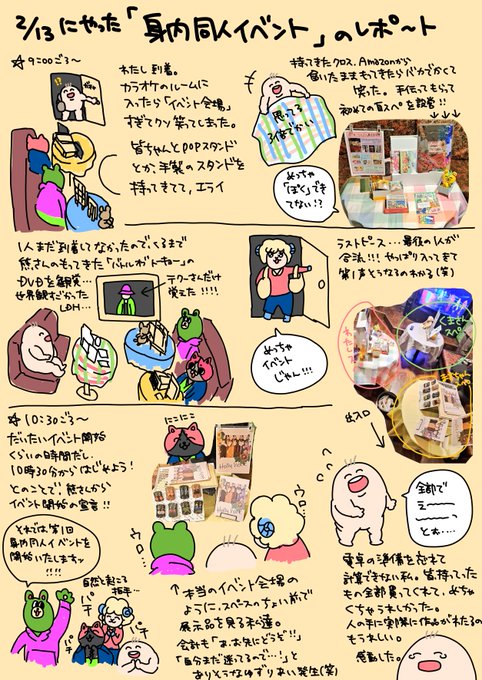 2/13にやった「身内同人イベント」のレポート
☆9:00ごろ〜
わたし到着。
カラオケのルームに
入ったら「イベント会場」
すぎてクソ笑ってしまった。
皆ちゃんとPOPスタンド
とか手製のスタンドを
持ってきてて、エライ
持ってきたクロス、Amazonから
届いたまま持ってきたらバカでかくて
笑った。手伝ってもらって
初めての自スペを設営!!
思ってる
めちゃ
「ぽく」でき
てない!?
1人まだ到着してなかったので、くるまで
熊さんのもってきた「バトル・オブ・トーキョー」の
DVDを観賞…
世界観すごかった
LDH…
テラーさんだけ
覚えた!!!!
めっちゃ
イベント
じゃん!!!
ラストピース…最後の1人が
合流!!!やっぱり入ってきて
第1声そうなるのわかる(笑)
わたし
くまさん
スペ
出入口
☆10:30ごろ〜
だいたいイベント開始
くらいの時間だし、
10時30分からはじめよう!
とのことで、熊さんから
イベント開始の宣言!!
にこにこ
それでは第1回
身内同人イベントを
開始いたしまーす
自然と起こる
拍手…
パチ
パチ
パチ
↑本当のイベント会場の
ように、スペースのちょい前で
展示品を見る私達
会計も「あ、お先にどうぞ!!」
「自分まだ迷ってるので…!」と
ありそうなゆずりあい発生(笑)
全部で
えーーー
ーーーっ
とぉ……
電卓の準備を忘れて
計算できない私。皆持ってった
もの全部買ってくれて、めちゃ
くちゃうれしかった。
人の手に実際に作品がわたるの
もうれしい。
感動した。